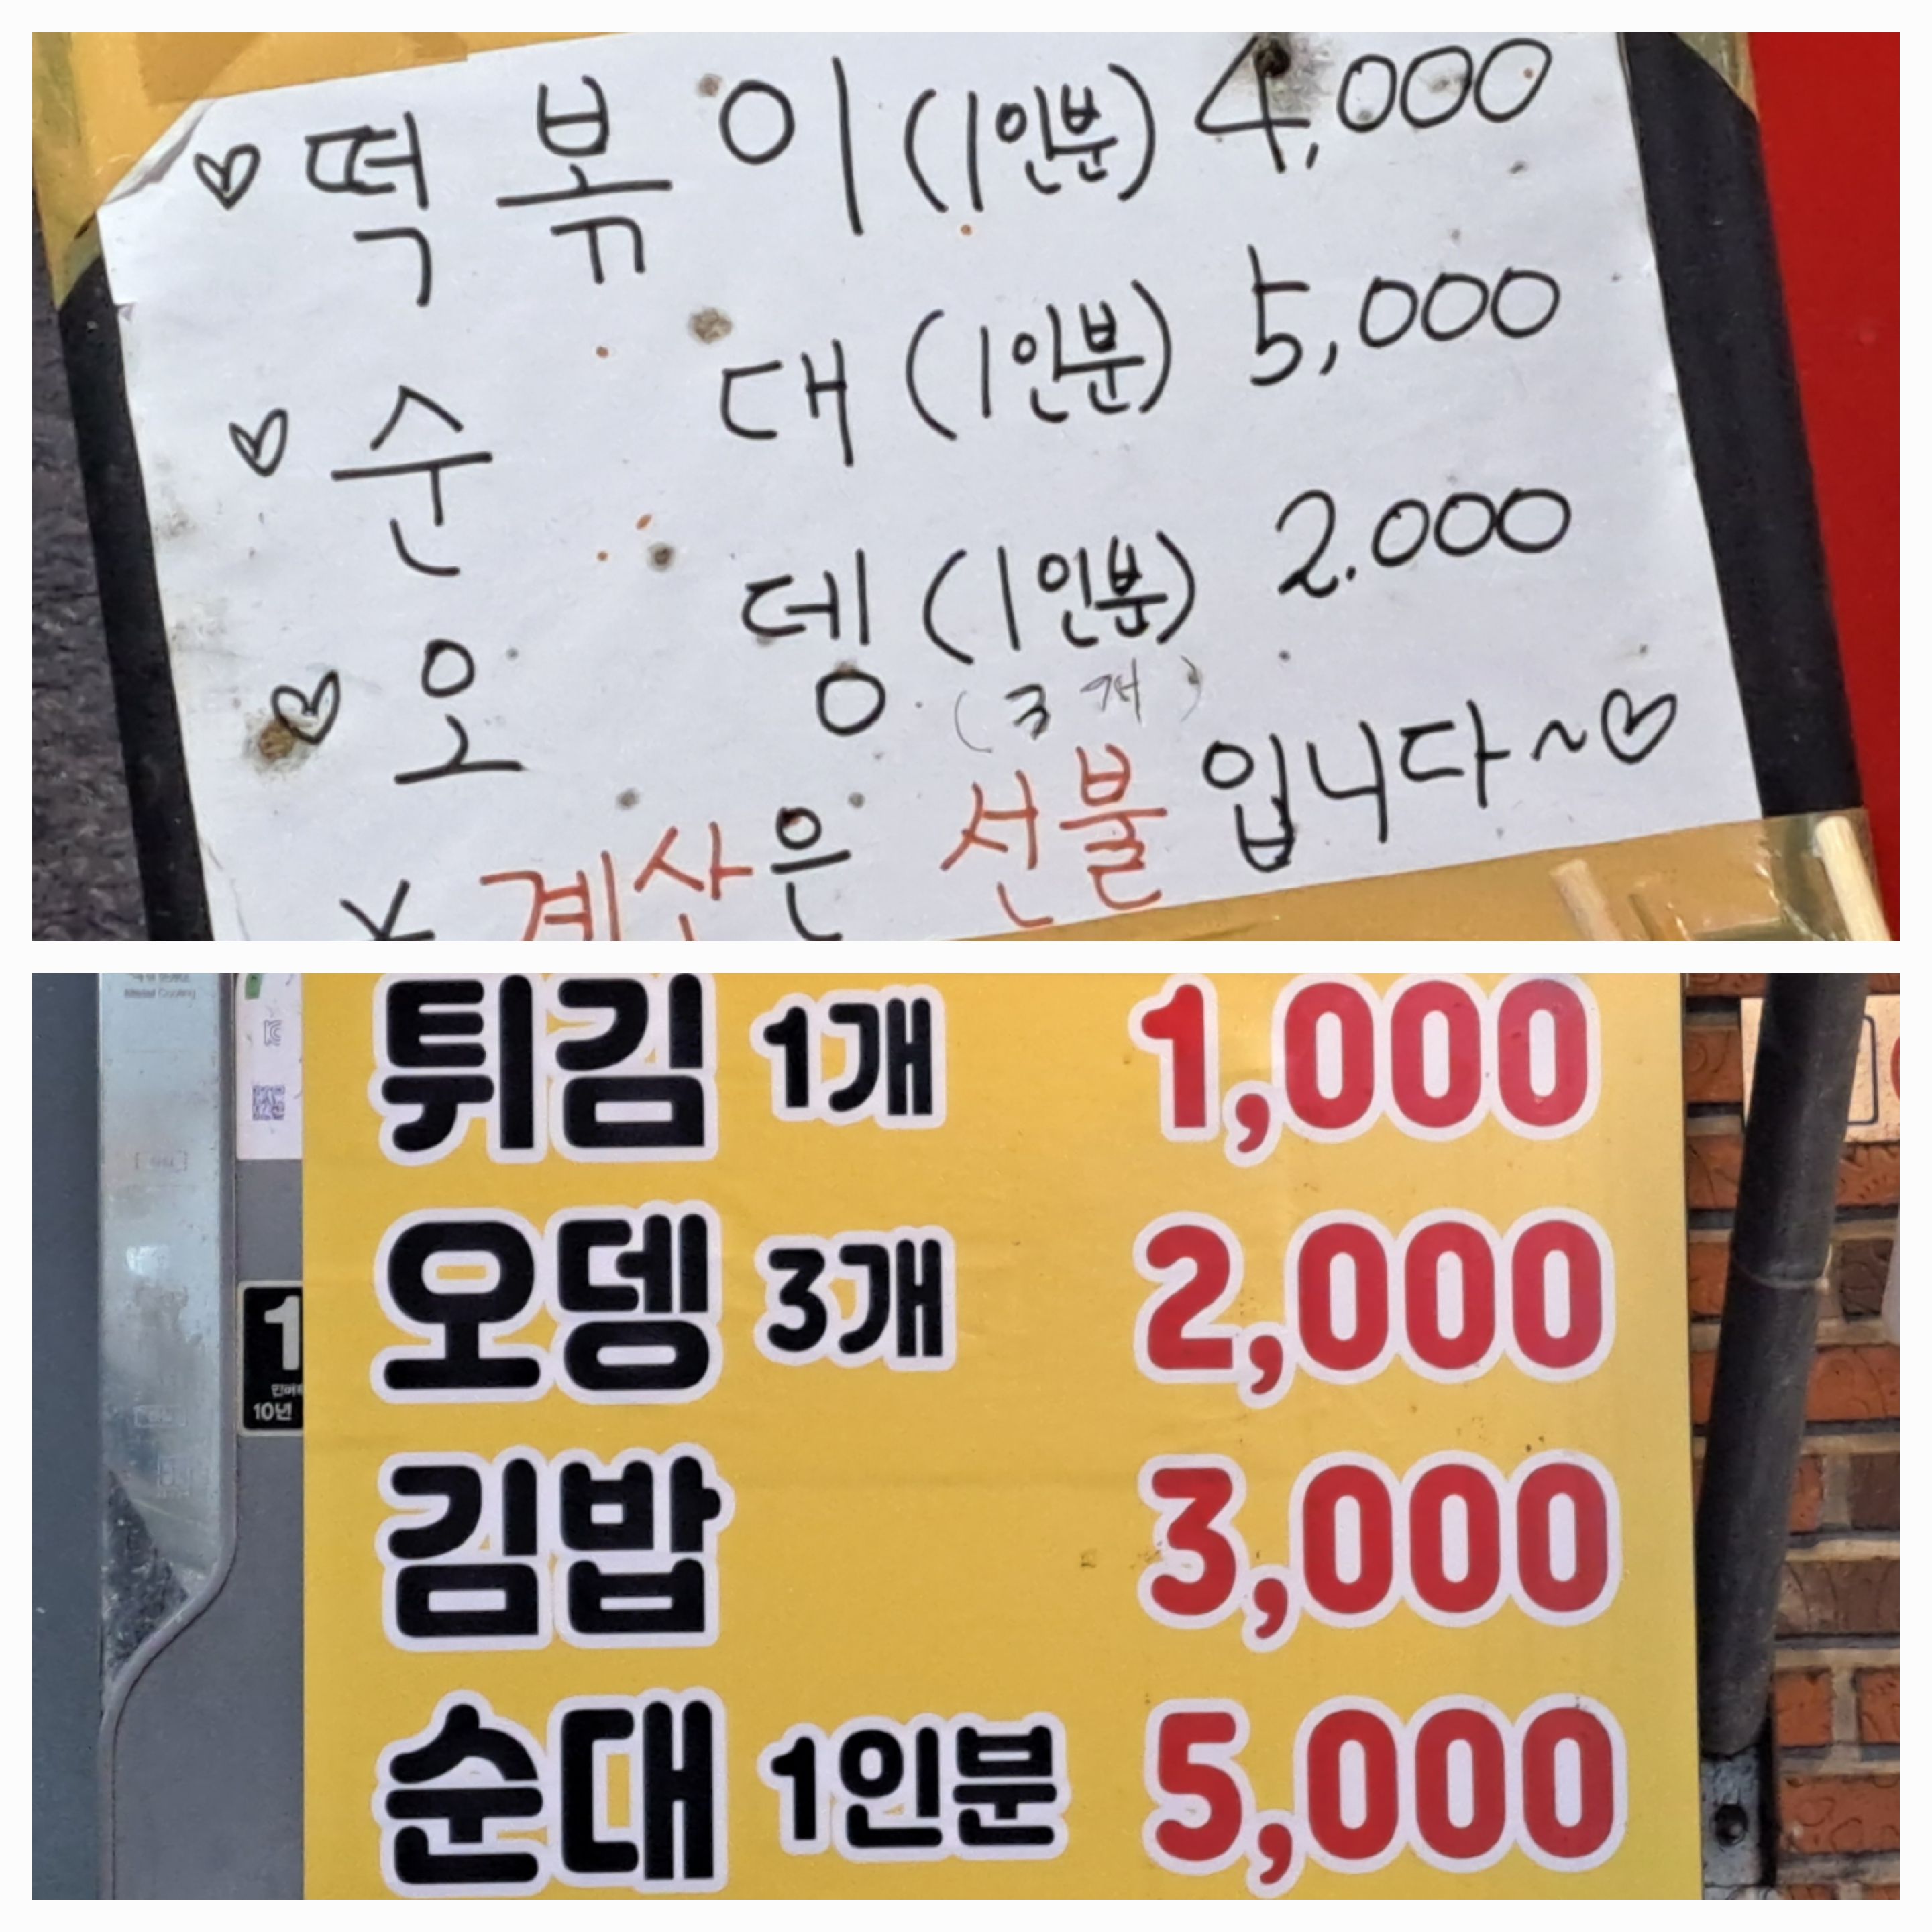 ♡ 떡볶이 (1인분) 4,000
♡ 순 대 (1인분) 5,000
♡ 오 뎅 (1인분) 2.000
(3개)
* 계산은 선불 입니다~♡
튀김 1개 1,000
오뎅 3개 2,000
1
10년
김밥 3,000
순대 1인분 5,000